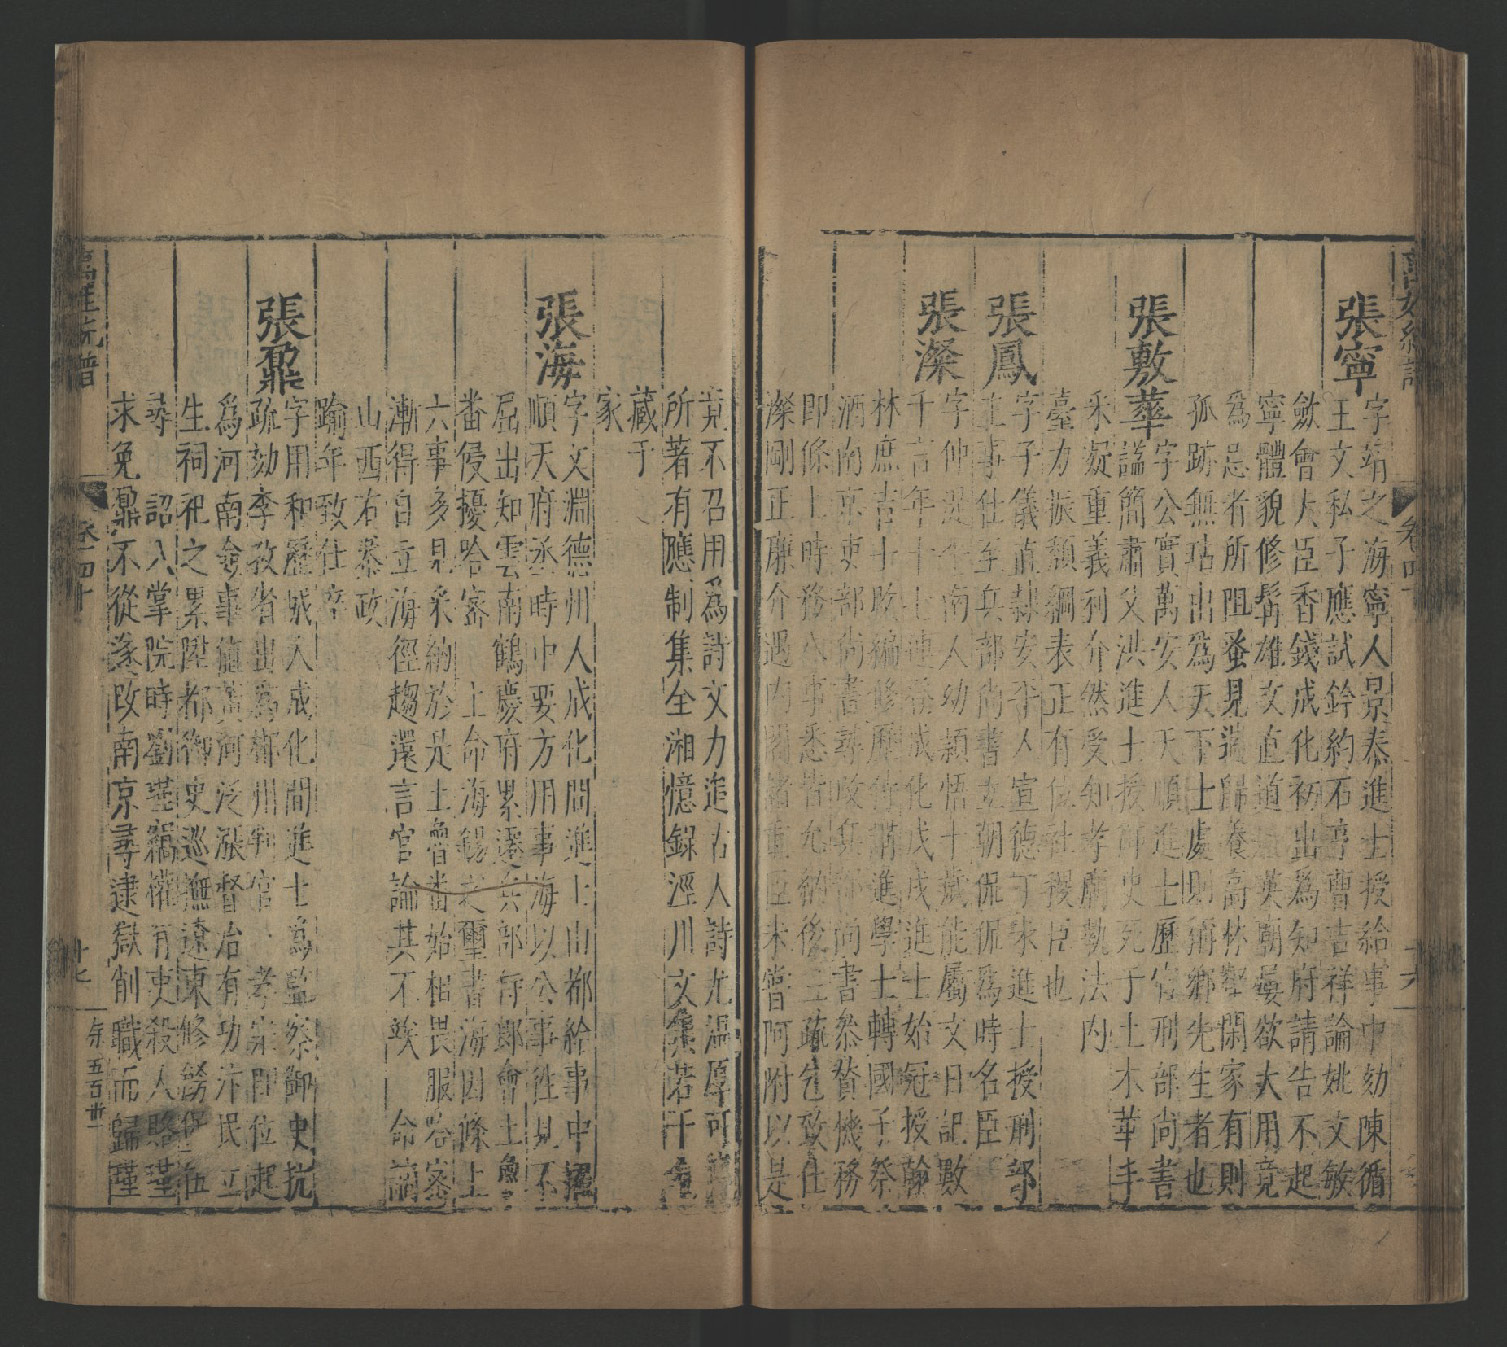 萬姓統譜
卷四十
張寧
字靖之海寧人景泰進士授給事中劾陳循
王文私子應試鈐約石亨曹吉祥論姚文敏
斂會大臣香錢成化初出為知府請告不起
寧體貌修髯雄文直道英廟屢欲大用竟
為忌者所阻蚤見潔歸養高林壑閑家有則
孤跡無玷出為天下士處則爲鄉先生者也
張敷華
字公實萬安人天順進士歷官刑部尚書
謚簡肅父洪進士授御史死于土木華手
釆凝重義利介然受知孝廟執法內
臺力振頹綱表正有位社稷臣也
張鳳
字子儀直隸安平人宣德丁未進士授刑部
主事仕至兵部尚書立朝侃侃為時名臣
張濬
字仲湜南人幼穎悟十歲能屬文日記數
千言年十七連舉成化戊戌進士始冠授翰
林庶吉士改編修歷侍講進學士轉國子祭
酒南京吏部尚書尋改兵部尚書叅贊機務
即條上時務八事悉皆允納後三疏乞致仕
濬剛正廉介遇內閣諸重臣未嘗阿附以是
竟不召用為詩文力追古人詩尤溫厚可
所著有應制集全湘憶錄涇川文集若干卷
藏于
家
張海
字文淵德州人成化間進士由都給事中擢
順天府丞時中要方用事海以公事往見不
屈出知雲南鶴慶府累遷兵部侍郎會土魯
番侵擾哈密 上命海錫之璽書海因條上
六事多見采納於是土魯番始相畏服哈密
漸得自立海徑趨還言官論其不竢 命謫
山西右叅政
踰年致仕卒
張鼐
字用和歷城人成化間進士為監察御史抗
疏劾李孜省出為郴州判官 孝宗即位起
為河南僉事值黃河泛漲督治有功汴民立
生祠祀之累陞都御史巡撫遼東修築
尋 詔入掌院時劉瑾竊權有吏殺人賂瑾
求免鼐不從遂改南京尋逮獄削職而歸瑾
萬姓統譜
卷四十
十七
五百廿一